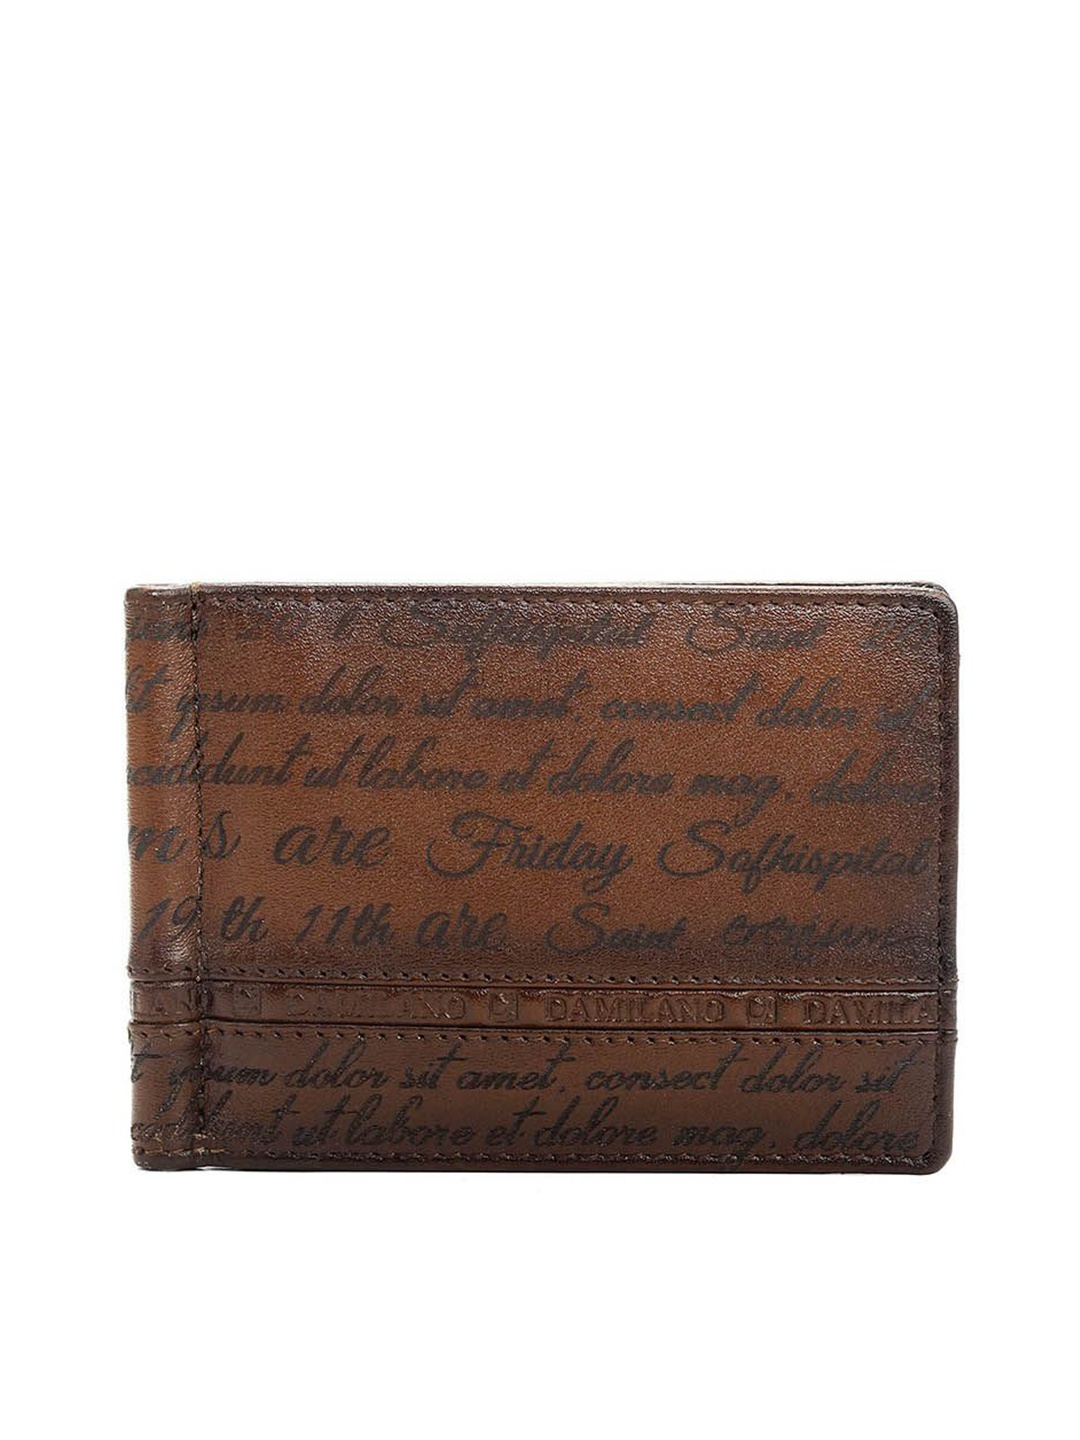 Safhispital Saint
it ipsum dolor sit amet, consect dolor sit
incididunt ut labore et dolore mag, dolore
m's are Friday Safhispital
19 th 11th are Saint
DAMILANO DAMILANO DAMILA
ipsum dolor sit amet, consect dolor sit
ut labore et dolore mag, dolore